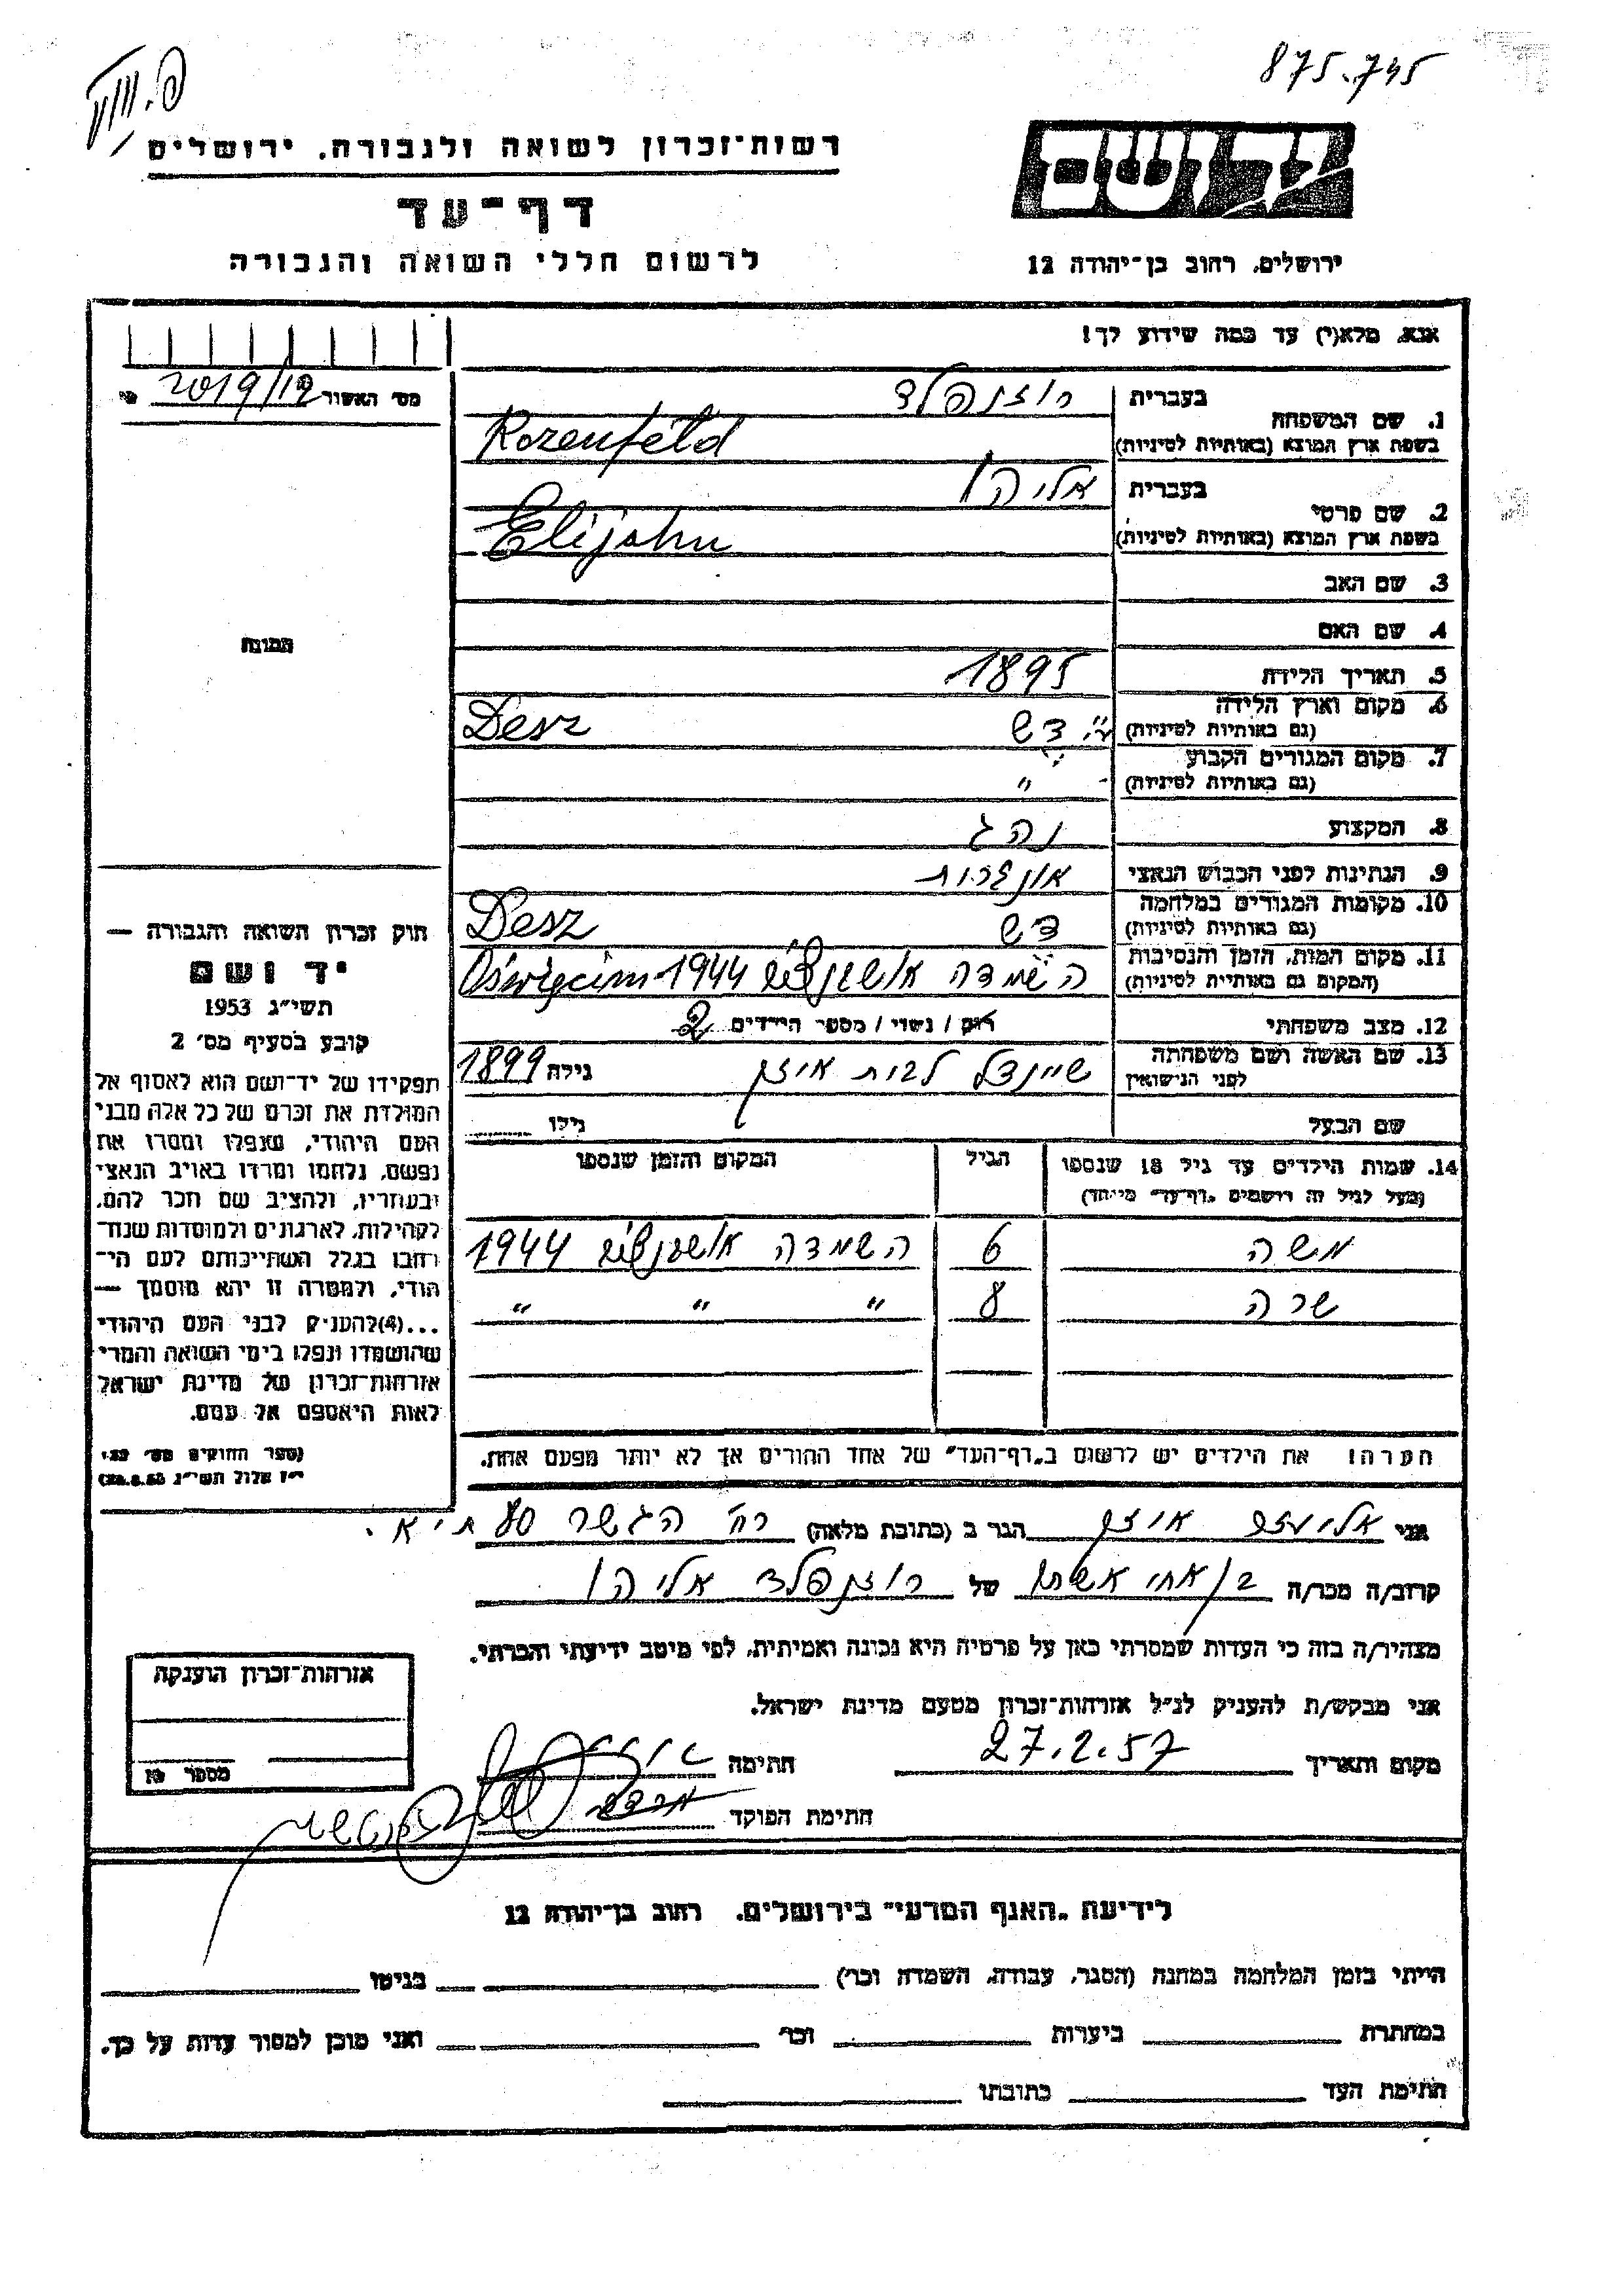 875.745
רשות־זכרון לשואה ולגבורה, ירושלים
דף־עד
לרשום חללי השואה והגבורה
יד ושם
ירושלים, רחוב בן־יהודה 12
אנא, מלא(י) עד כמה שידוע לך!
מס׳ האשור 2019/12
1. שם המשפחה
בעברית רוזנפלד
בשפת ארץ המוצא (באותיות לטיניות) Rozenfeld
2. שם פרטי
בעברית אליהו
בשפת ארץ המוצא (באותיות לטיניות) Elijahu
3. שם האב
4. שם האם
5. תאריך הלידה 1895
6. מקום וארץ הלידה
(גם באותיות לטיניות) דש Desz
7. מקום המגורים הקבוע
(גם באותיות לטיניות) "
8. המקצוע נהג
9. הנתינות לפני הכבוש הנאצי אונגרית
10. מקומות המגורים במלחמה
(גם באותיות לטיניות) דש Desz
11. מקום המות, הזמן והנסיבות
(המקום גם באותיות לטיניות) השמדה אושונצ׳ים 1944 Oświęcim
12. מצב משפחתי רוק / נשוי / מספר הילדים 2
13. שם האשה ושם משפחתה
לפני הנישואין שיינדל לבית אייזן גילה 1899
שם הבעל גילו
14. שמות הילדים עד גיל 18 שנספו הגיל המקום והזמן שנספו
(מעל לגיל זה רושמים "דף־עד" מיוחד)
משה 6 השמדה אושונצ׳ים 1944
שרה 8 " " "
הערה! את הילדים יש לרשום ב"דף־העד" של אחד ההורים אך לא יותר מפעם אחת.
התמונה
חוק זכרון השואה והגבורה —
יד ושם
תשי״ג 1953
קובע בסעיף מס׳ 2
תפקידו של יד־ושם הוא לאסוף אל
המולדת את זכרם של כל אלה מבני
העם היהודי, שנפלו ומסרו את
נפשם, נלחמו ומרדו באויב הנאצי
ובעוזריו, ולהציב שם וזכר להם,
לקהילות, לארגונים ולמוסדות שנח־
רבו בגלל השתייכותם לעם הי־
הודי, ולמטרה זו יהא מוסמך —
...(4) להעניק לבני העם היהודי
שהושמדו ונפלו בימי השואה והמרי
אזרחות־זכרון של מדינת ישראל
לאות היאספם אל עמם.
(ספר החוקים מס׳ 132,
י״ז אלול תשי״ג 28.8.53)
אני אייזן הגר ב (כתובת מלאה) רח׳ הגשר 80 ת״א.
קרוב/ה מכר/ה בן אחי אשתו של רוזנפלד אליהו
מצהיר/ה בזה כי העדות שמסרתי כאן על פרטיה היא נכונה ואמיתית, לפי מיטב ידיעתי והכרתי.
אני מבקש/ת להעניק לנ״ל אזרחות־זכרון מטעם מדינת ישראל.
מקום ותאריך 27.2.57 חתימה
חתימת הפוקד
אזרחות־זכרון הוענקה
מספר
לידיעת "האגף המדעי" בירושלים, רחוב בן־יהודה 12
הייתי בזמן המלחמה במחנה (הסגר, עבודה, השמדה וכו׳) בגיטו
במחתרת ביערות וכו׳ ואני מוכן למסור עדות על כך.
חתימת העד כתובתו